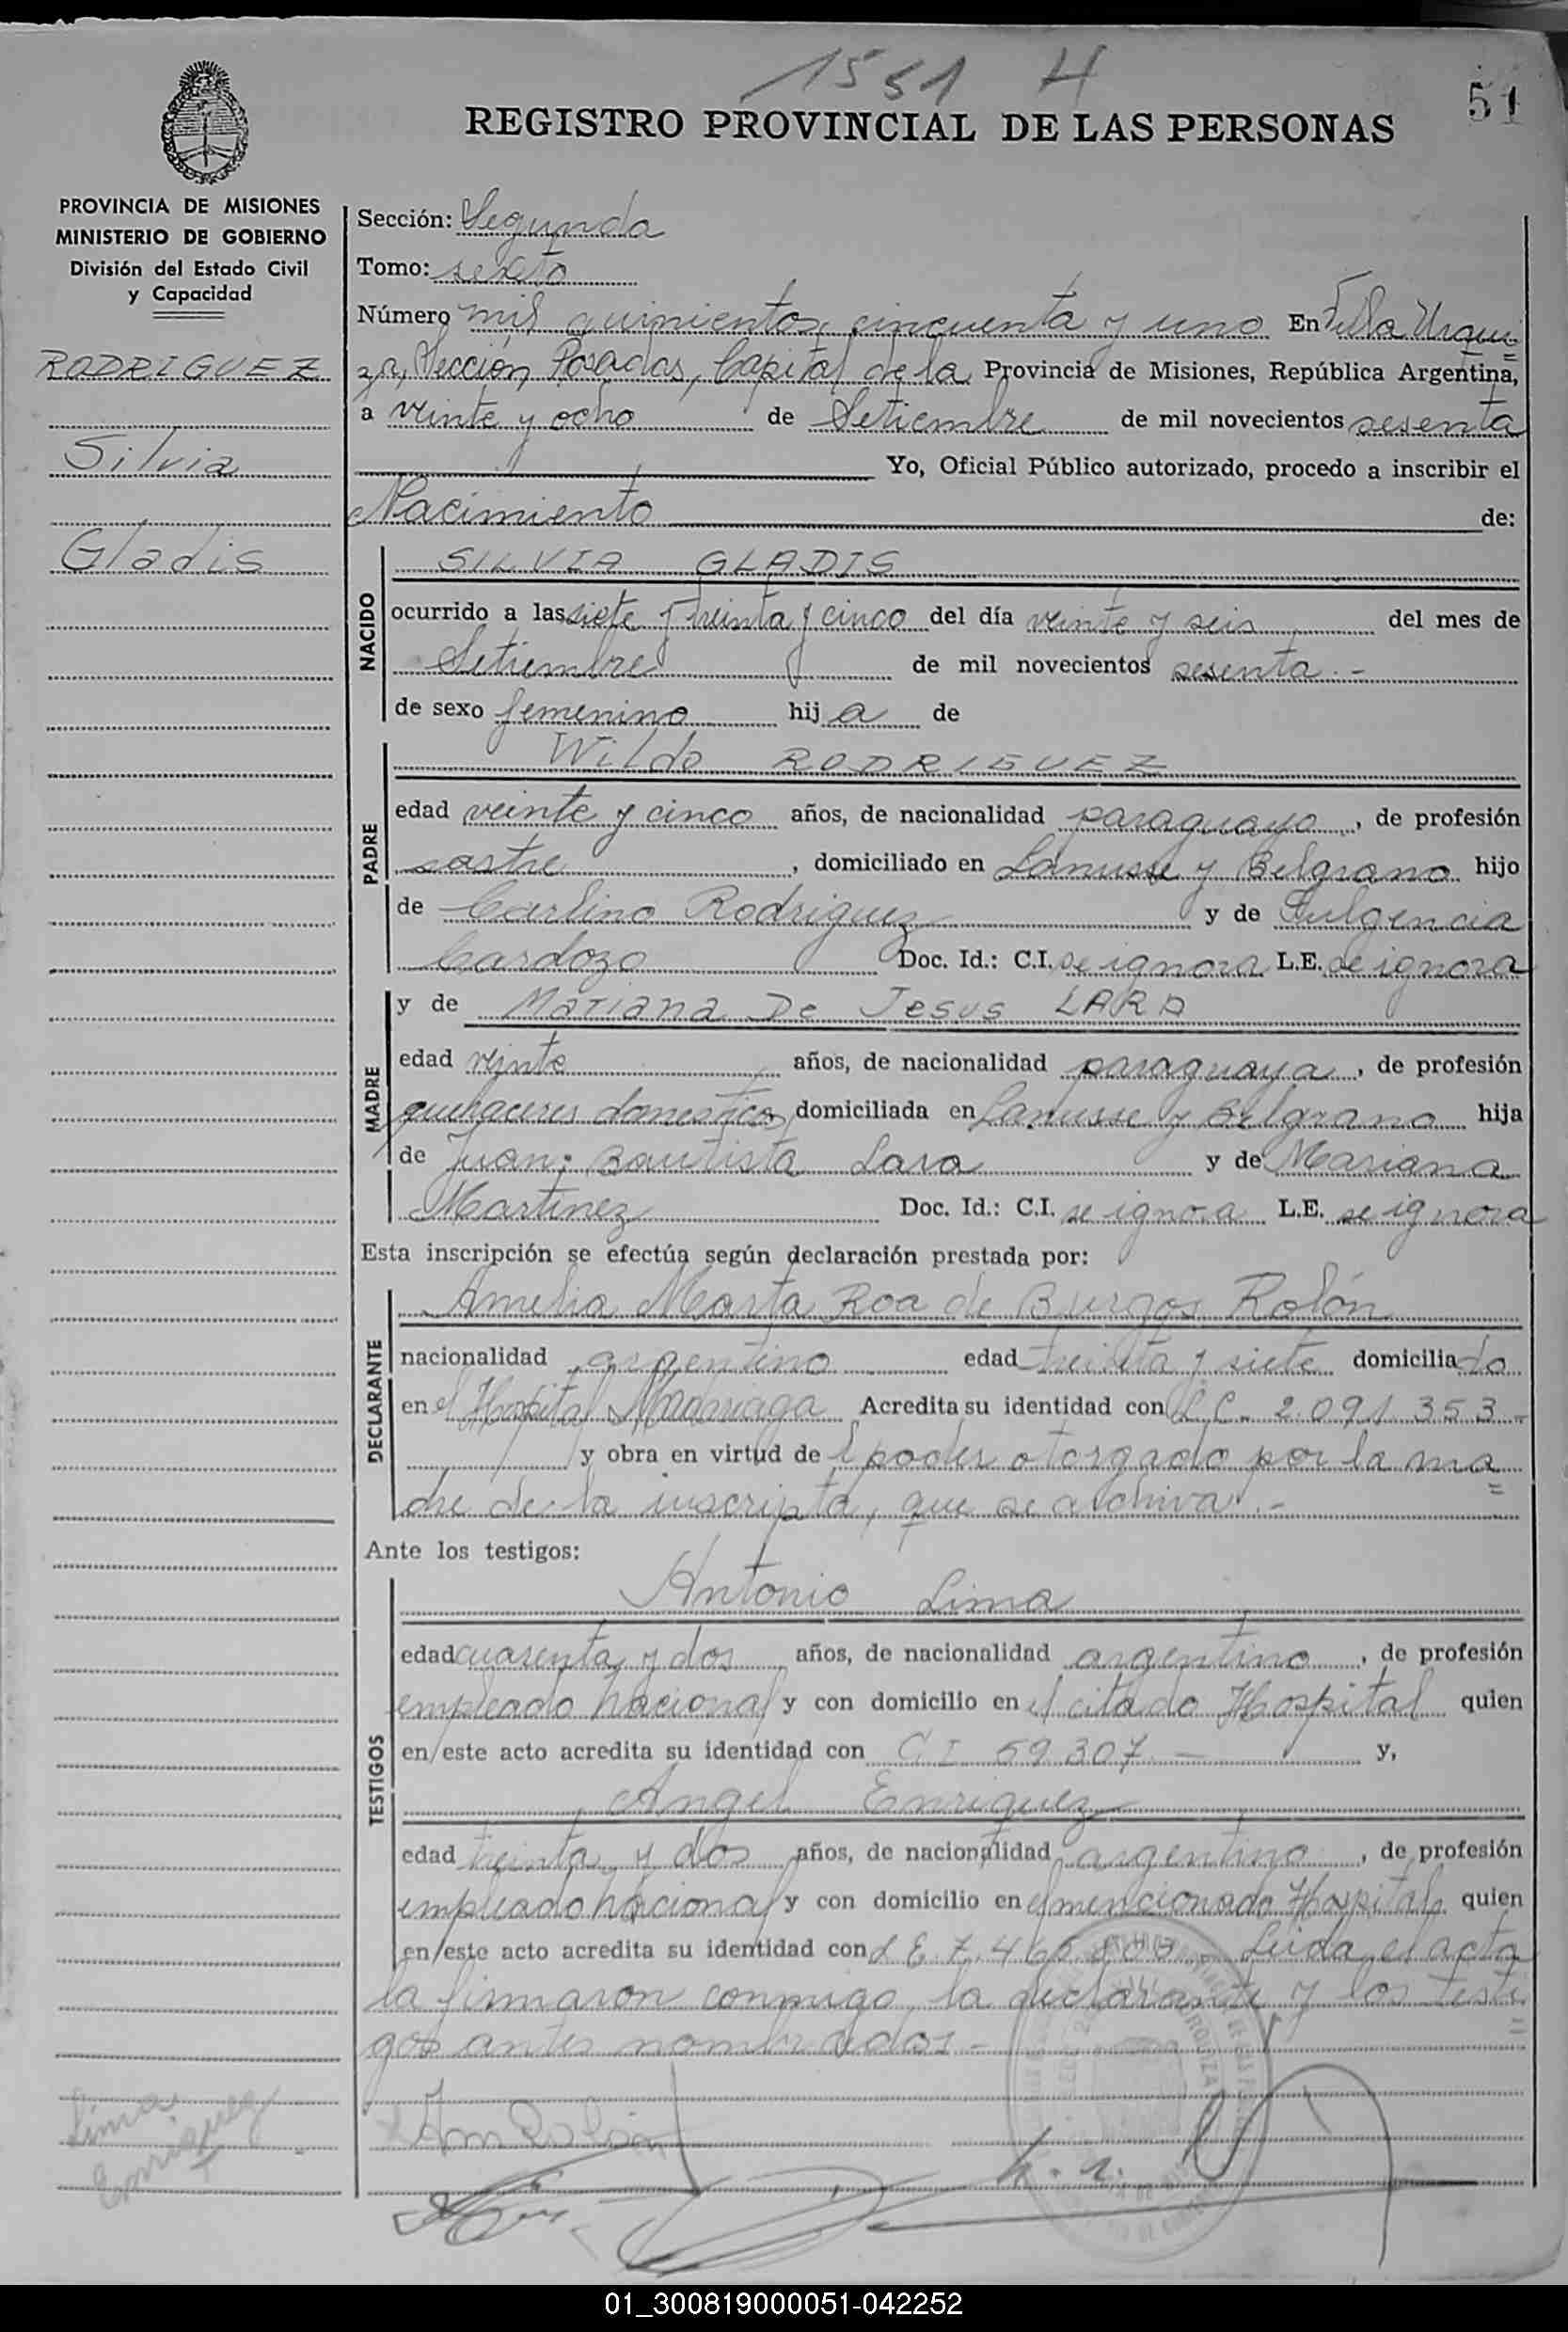 1551 H
51
REGISTRO PROVINCIAL DE LAS PERSONAS
PROVINCIA DE MISIONES
MINISTERIO DE GOBIERNO
División del Estado Civil
y Capacidad
RODRIGUEZ
Silvia
Gladis
Sección: Segunda
Tomo: sexto
Número mil quinientos cincuenta y uno En Villa Urqui=
za, Sección Posadas, Capital de la Provincia de Misiones, República Argentina,
a veinte y ocho de Setiembre de mil novecientos sesenta
Yo, Oficial Público autorizado, procedo a inscribir el
Nacimiento de:
NACIDO
SILVIA GLADIS
ocurrido a las siete y treinta y cinco del día veinte y seis del mes de
Setiembre de mil novecientos sesenta.-
de sexo femenino hija de
PADRE
Wildo RODRIGUEZ
edad veinte y cinco años, de nacionalidad paraguayo, de profesión
sastre, domiciliado en Lanusse y Belgrano hijo
de Carlino Rodriguez y de Fulgencia
Cardozo Doc. Id.: C.I. se ignora L.E. se ignora
MADRE
y de Mariana De Jesus LARA
edad veinte años, de nacionalidad paraguaya, de profesión
quehaceres domesticos, domiciliada en Lanusse y Belgrano hija
de Juan Bautista Lara y de Mariana
Martinez Doc. Id.: C.I. se ignora L.E. se ignora
Esta inscripción se efectúa según declaración prestada por:
DECLARANTE
Amelia Marta Roa de Burgos Rolón
nacionalidad argentino edad treinta y siete domiciliado
en el Hospital Madariaga Acredita su identidad con L.C. 2.091.353-
y obra en virtud del poder otorgado por la ma=
dre de la inscripta, que se archiva.-
Ante los testigos:
TESTIGOS
Antonio Lima
edad cuarenta y dos años, de nacionalidad argentino, de profesión
empleado nacional y con domicilio en el citado Hospital quien
en este acto acredita su identidad con C.I 59.307- y,
Angel Enriquez
edad treinta y dos años, de nacionalidad argentino, de profesión
empleado nacional y con domicilio en el mencionado Hospital quien
en este acto acredita su identidad con L.E. 7.46 Leida el acta
la firmaron conmigo, la declarante y los testi=
gos antes nombrados.-
Lima
Enriquez
Am Rolón
01_300819000051-042252